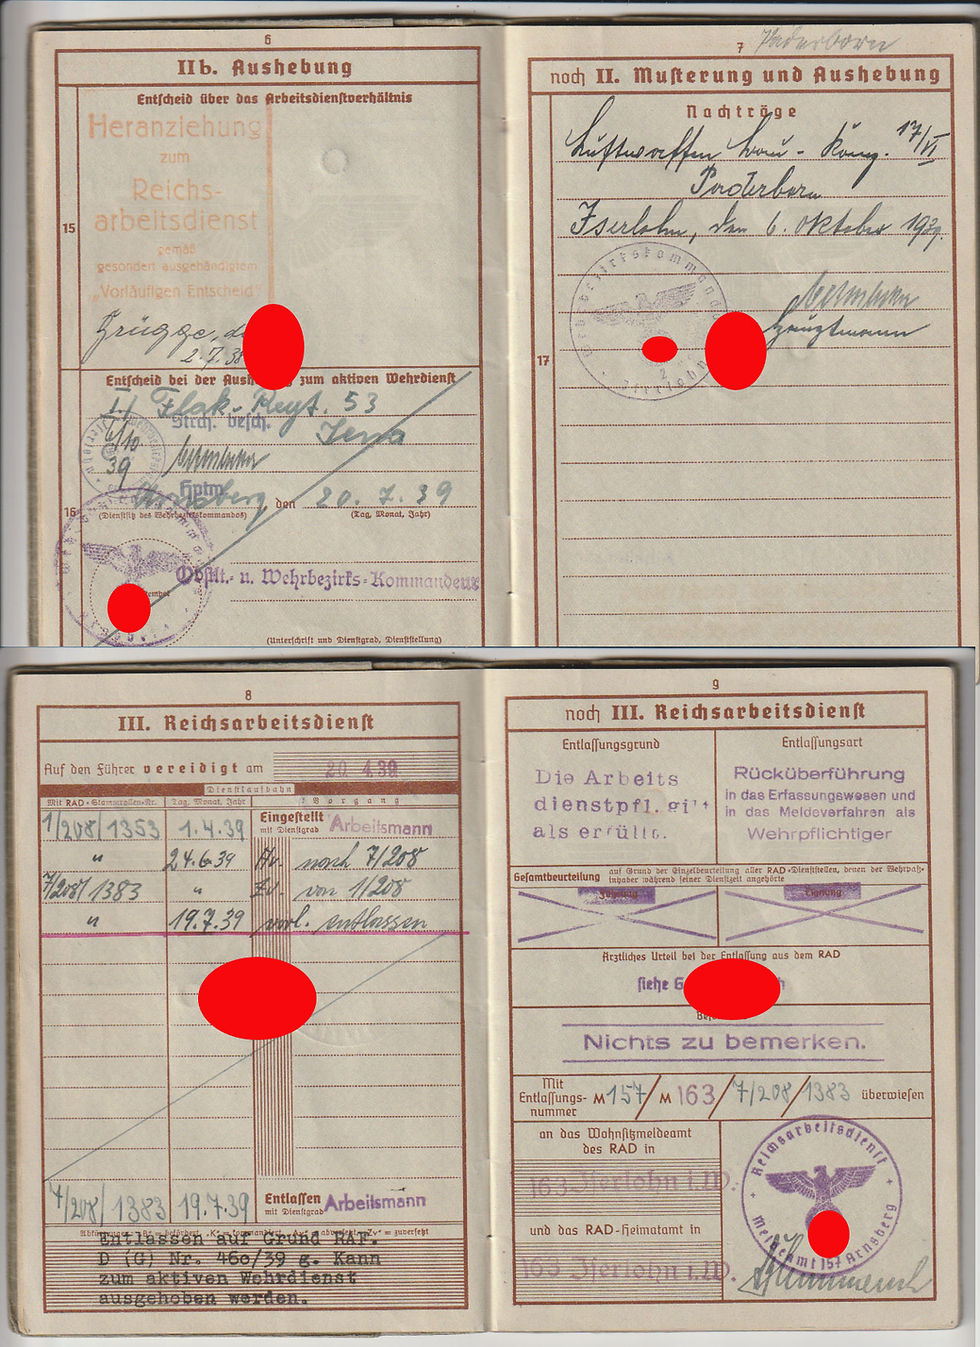 6
IIb. Aushebung
Entscheid über das Arbeitsdienstverhältnis
Heranziehung
zum
Reichs-
arbeitsdienst
gemäß
gesondert ausgehändigtem
„Vorläufigen Entscheid"
15
Brügge, d
2.7.38
Entscheid bei der Aush zum aktiven Wehrdienst
I./ Flak-Regt. 53
Strch. besch.
Jena
6/10
39
Hptm
Arnsberg den 20. 7. 39
16
(Dienstsitz des Wehrbezirkskommandos) (Tag, Monat, Jahr)
Obstlt.- u. Wehrbezirks-Kommandeur
(Unterschrift und Dienstgrad, Dienststellung)
7 Paderborn
noch II. Musterung und Aushebung
Nachträge
Luftwaffen 17/VI
Paderborn
Iserlohn, den 6. Oktober 1939.
Hauptmann
17
8
III. Reichsarbeitsdienst
Auf den Führer vereidigt am 20 4.39
Dienstlaufbahn
Mit RAD-Stammrollen-Nr. Tag, Monat, Jahr Vorgang
1/208/1353 1.4.39 Eingestellt mit Dienstgrad Arbeitsmann
" 24.6.39 Av. nach 7/208
7/208/1383 " Zv. von 1/208
" 19.7.39 vorl. entlassen
7/208/1383 19.7.39 Entlassen mit Dienstgrad Arbeitsmann
Entlassen auf Grund RAF.
D (G) Nr. 460/39 g. Kann
zum aktiven Wehrdienst
ausgehoben werden.
9
noch III. Reichsarbeitsdienst
Entlassungsgrund Entlassungsart
Die Arbeits
dienstpfl. gilt
als erfüllt.
Rücküberführung
in das Erfassungswesen und
in das Meldeverfahren als
Wehrpflichtiger
Gesamtbeurteilung auf Grund der Einzelbeurteilung aller RAD-Dienststellen, denen der Wehrpaß-
inhaber während seiner Dienstzeit angehörte
Eignung
Ärztliches Urteil bei der Entlassung aus dem RAD
siehe G
Nichts zu bemerken.
Mit
Entlassungs-
nummer
M 157/M 163/7/208/1383 überwiesen
an das Wohnsitzmeldeamt
des RAD in
163 Iserlohn i.W.
und das RAD-Heimatamt in
163 Iserlohn i.W.
Reichsarbeitsdienst
Meldeamt 157 Arnsberg